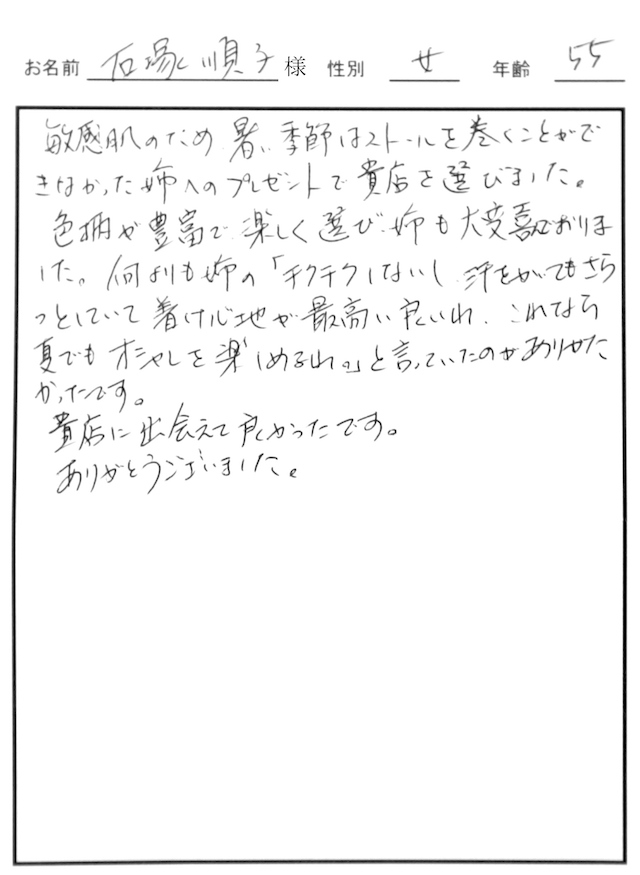 お名前 石塚順子 様 性別 女 年齢 55
敏感肌のため、暑い季節はストールを巻くことがで
きなかった姉へのプレゼントで貴店を選びました。
色柄が豊富で、楽しく選び、姉も大変喜んでおりま
した。何よりも姉の「チクチクしないし、汗をかいてもさら
っとしていて着け心地が最高に良いわ、これなら
夏でもオシャレを楽しめるわ。」と言っていたのがありがた
かったです。
貴店に出会えて良かったです。
ありがとうございました。